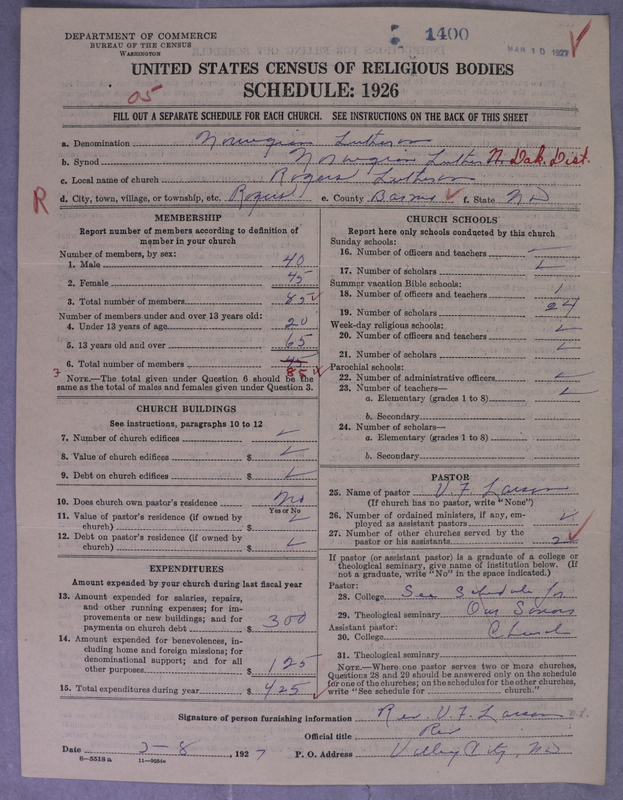 DEPARTMENT OF COMMERCE
BUREAU OF THE CENSUS
WASHINGTON
1400
MAR 10 1927
UNITED STATES CENSUS OF RELIGIOUS BODIES
SCHEDULE: 1926
05
FILL OUT A SEPARATE SCHEDULE FOR EACH CHURCH. SEE INSTRUCTIONS ON THE BACK OF THIS SHEET
a. Denomination Norwegian Lutheran
b. Synod Norwegian Luther N. Dak. Dist.
c. Local name of church Rogers Lutheran
R d. City, town, village, or township, etc. Rogers e. County Barnes f. State ND
MEMBERSHIP
Report number of members according to definition of
member in your church
Number of members, by sex:
1. Male 40
2. Female 45
3. Total number of members 85
Number of members under and over 13 years old:
4. Under 13 years of age 20
5. 13 years old and over 65
6. Total number of members 45 85
NOTE.—The total given under Question 6 should be the
same as the total of males and females given under Question 3.
CHURCH BUILDINGS
See instructions, paragraphs 10 to 12
7. Number of church edifices
8. Value of church edifices $
9. Debt on church edifices $
10. Does church own pastor's residence No
Yes or No
11. Value of pastor's residence (if owned by
church) $
12. Debt on pastor's residence (if owned by
church) $
EXPENDITURES
Amount expended by your church during last fiscal year
13. Amount expended for salaries, repairs,
and other running expenses; for im-
provements or new buildings; and for
payments on church debt $ 300
14. Amount expended for benevolences, in-
cluding home and foreign missions; for
denominational support; and for all
other purposes $ 125
15. Total expenditures during year $ 425
CHURCH SCHOOLS
Report here only schools conducted by this church
Sunday schools:
16. Number of officers and teachers
17. Number of scholars
Summer vacation Bible schools:
18. Number of officers and teachers 1
19. Number of scholars 24
Week-day religious schools:
20. Number of officers and teachers
21. Number of scholars
Parochial schools:
22. Number of administrative officers
23. Number of teachers—
a. Elementary (grades 1 to 8)
b. Secondary
24. Number of scholars—
a. Elementary (grades 1 to 8)
b. Secondary
PASTOR
25. Name of pastor V. F. Larson
(If church has no pastor, write "None")
26. Number of ordained ministers, if any, em-
ployed as assistant pastors
27. Number of other churches served by the
pastor or his assistants 2
If pastor (or assistant pastor) is a graduate of a college or
theological seminary, give name of institution below. (If
not a graduate, write "No" in the space indicated.)
Pastor:
28. College See Schedule for
29. Theological seminary Our Saviors
Assistant pastor:
30. College Church
31. Theological seminary
NOTE.—Where one pastor serves two or more churches,
Questions 28 and 29 should be answered only on the schedule
for one of the churches; on the schedules for the other churches,
write "See schedule for church."
Signature of person furnishing information Rev. V. F. Larson
Official title Rev
Date 3-8, 1927 P. O. Address Valley City, ND
8-5518a 11-9254